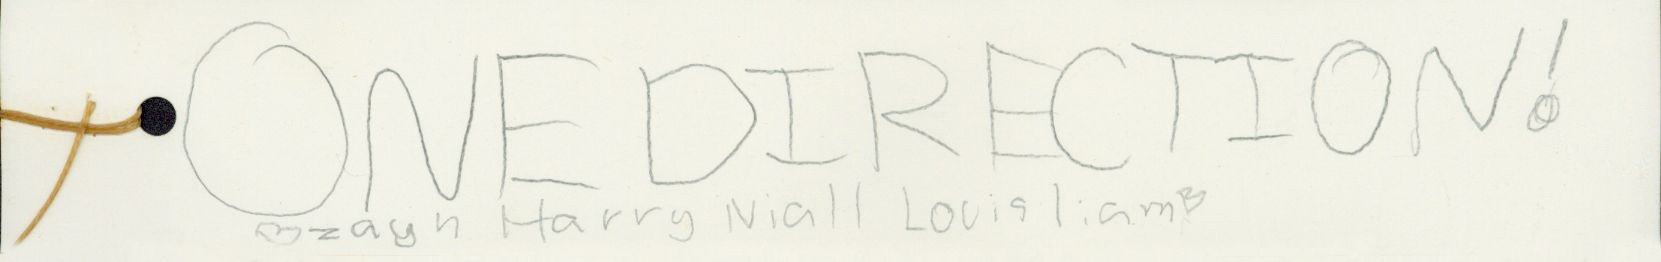 ONE DIRECTION!
♡zayn Harry Niall Louis liam♡